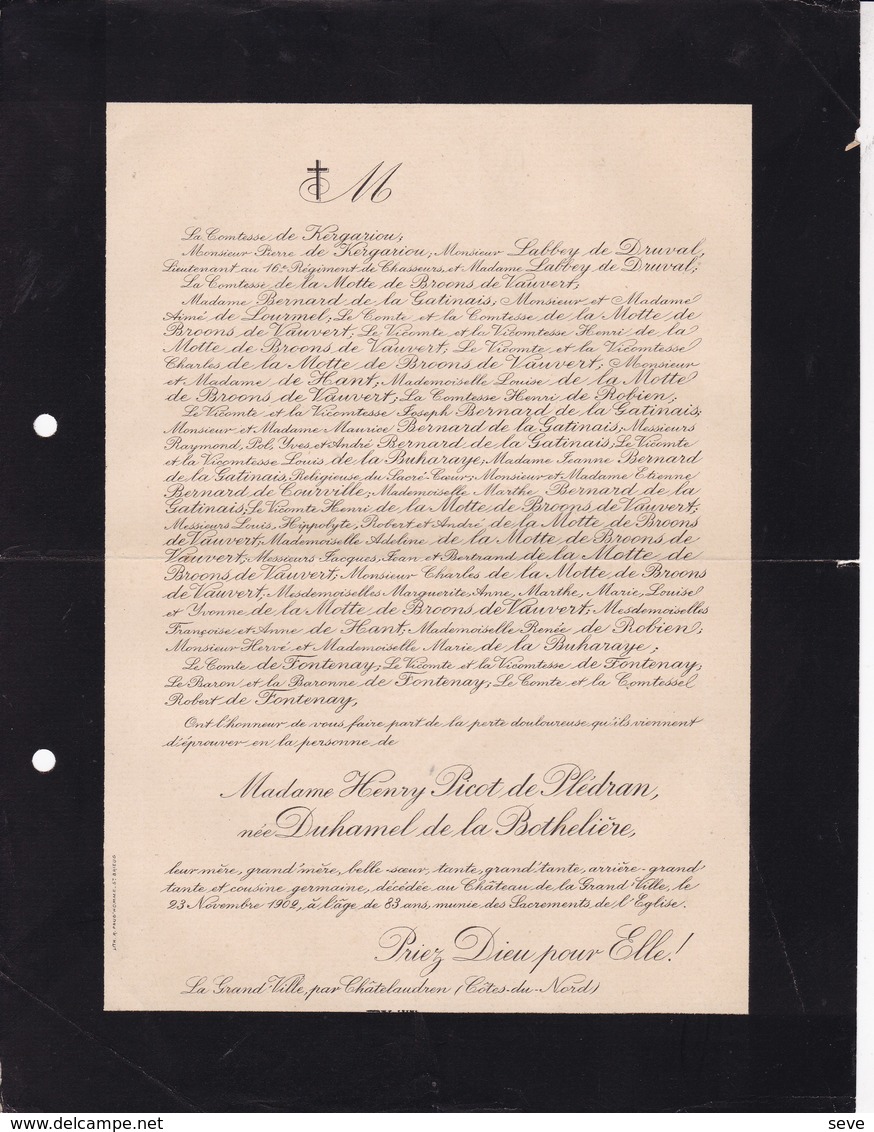 M
La Comtesse de Kergariou;
Monsieur Pierre de Kergariou; Monsieur Labbey de Druval,
Lieutenant au 16e Régiment de Chasseurs, et Madame Labbey de Druval;
La Comtesse de la Motte de Broons de Vauvert;
Madame Bernard de la Gatinais; Monsieur et Madame
Aimé de Lourmel; Le Comte et la Comtesse de la Motte de
Broons de Vauvert; Le Vicomte et la Vicomtesse Henri de la
Motte de Broons de Vauvert; Le Vicomte et la Vicomtesse
Charles de la Motte de Broons de Vauvert; Monsieur
et Madame de Hant; Mademoiselle Louise de la Motte
de Broons de Vauvert; La Comtesse Henri de Robien;
Le Vicomte et la Vicomtesse Joseph Bernard de la Gatinais;
Monsieur et Madame Maurice Bernard de la Gatinais; Messieurs
Raymond, Pol, Yves et André Bernard de la Gatinais; Le Vicomte
et la Vicomtesse Louis de la Buharaye; Madame Jeanne Bernard
de la Gatinais, Religieuse du Sacré-Cœur; Monsieur et Madame Etienne
Bernard de Courville; Mademoiselle Marthe Bernard de la
Gatinais; Le Vicomte Henri de la Motte de Broons de Vauvert;
Messieurs Louis, Hippolyte, Robert et André de la Motte de Broons
de Vauvert; Mademoiselle Adeline de la Motte de Broons de
Vauvert; Messieurs Jacques, Jean et Bertrand de la Motte de
Broons de Vauvert; Monsieur Charles de la Motte de Broons
de Vauvert; Mesdemoiselles Marguerite, Anne, Marthe, Marie, Louise
et Yvonne de la Motte de Broons de Vauvert; Mesdemoiselles
Françoise et Anne de Hant; Mademoiselle Renée de Robien;
Monsieur Hervé et Mademoiselle Marie de la Buharaye;
Le Comte de Fontenay; Le Vicomte et la Vicomtesse de Fontenay;
Le Baron et la Baronne de Fontenay; Le Comte et la Comtesse
Robert de Fontenay,
Ont l'honneur de vous faire part de la perte douloureuse qu'ils viennent
d'éprouver en la personne de
Madame Henry Picot de Plédran,
née Duhamel de la Bothelière,
leur mère, grand'mère, belle-sœur, tante, grand'tante, arrière-grand
tante et cousine germaine, décédée au Château de la Grand'Ville, le
23 Novembre 1902, à l'âge de 83 ans, munie des Sacrements de l'Eglise.
Priez Dieu pour Elle!
La Grand'Ville, par Châtelaudren (Côtes-du-Nord)
LITH. R. PRUD'HOMME_ST BRIEUC
delcampe.net
seve